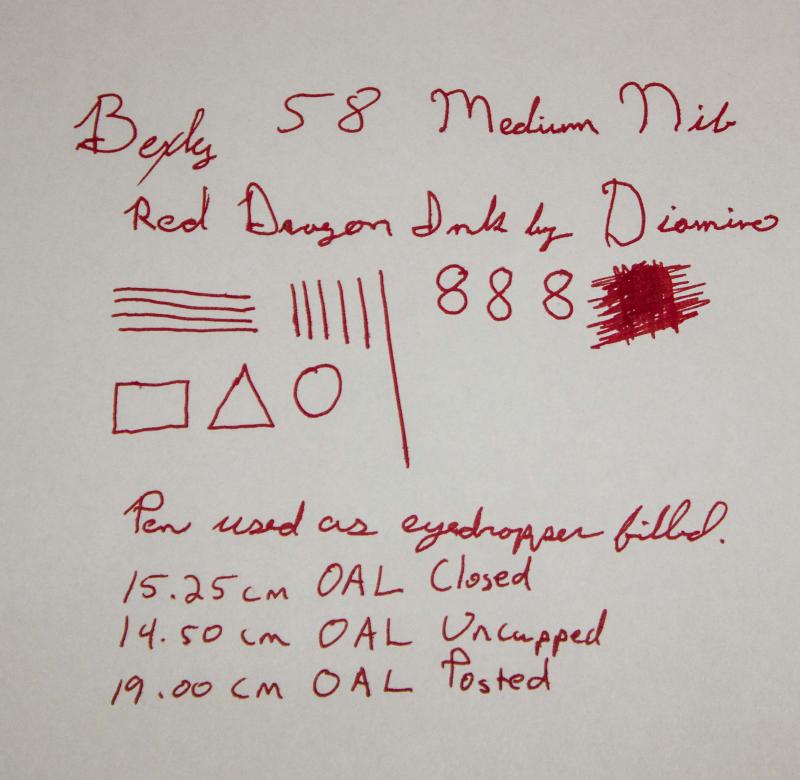 Bexly 58 Medium Nib
Red Dragon Ink by Diamine
888
Pen used as eyedropper filled.
15.25cm OAL Closed
14.50 cm OAL Uncapped
19.00 cm OAL Posted